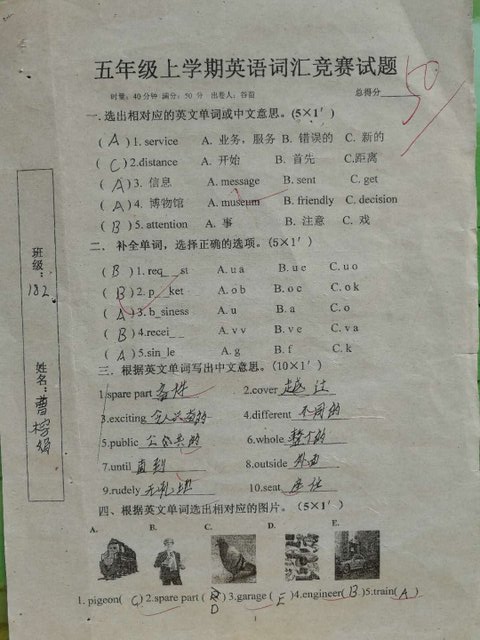 五年级上学期英语词汇竞赛试题
50
时量：40分钟 满分：50 分 出卷人：谷雨 总得分
一.选出相对应的英文单词或中文意思。(5×1′)
( A ) 1. service A. 业务，服务 B. 错误的 C. 新的
( C ) 2.distance A. 开始 B. 首先 C.距离
( A ) 3. 信息 A. message B. sent C. get
( A ) 4. 博物馆 A. museum B. friendly C. decision
( B ) 5. attention A. 事 B. 注意 C. 戏
二. 补全单词，选择正确的选项。(5×1′)
( B ) 1. req__st A. u a B. u e C. u o
( B ) 2. p__ket A. o b B. o c C. o k
( A ) 3. b_siness A. u B. a C. o
( B ) 4.recei__ A. v v B. v e C. v a
( A ) 5.sin_le A. g B. f C. k
三. 根据英文单词写出中文意思。(10×1′)
1.spare part 备件 2.cover 越过
3.exciting 令人兴奋的 4.different 不同的
5.public 公众的 6.whole 整个的
7.until 直到 8.outside 外面
9.rudely 无礼地 10.seat 座位
四、根据英文单词选出相对应的图片。(5×1′)
A. B. C. D. E.
1. pigeon( C ) 2.spare part ( D ) 3.garage ( E ) 4.engineer( B ) 5.train( A )
1
班级：182
姓名：曹